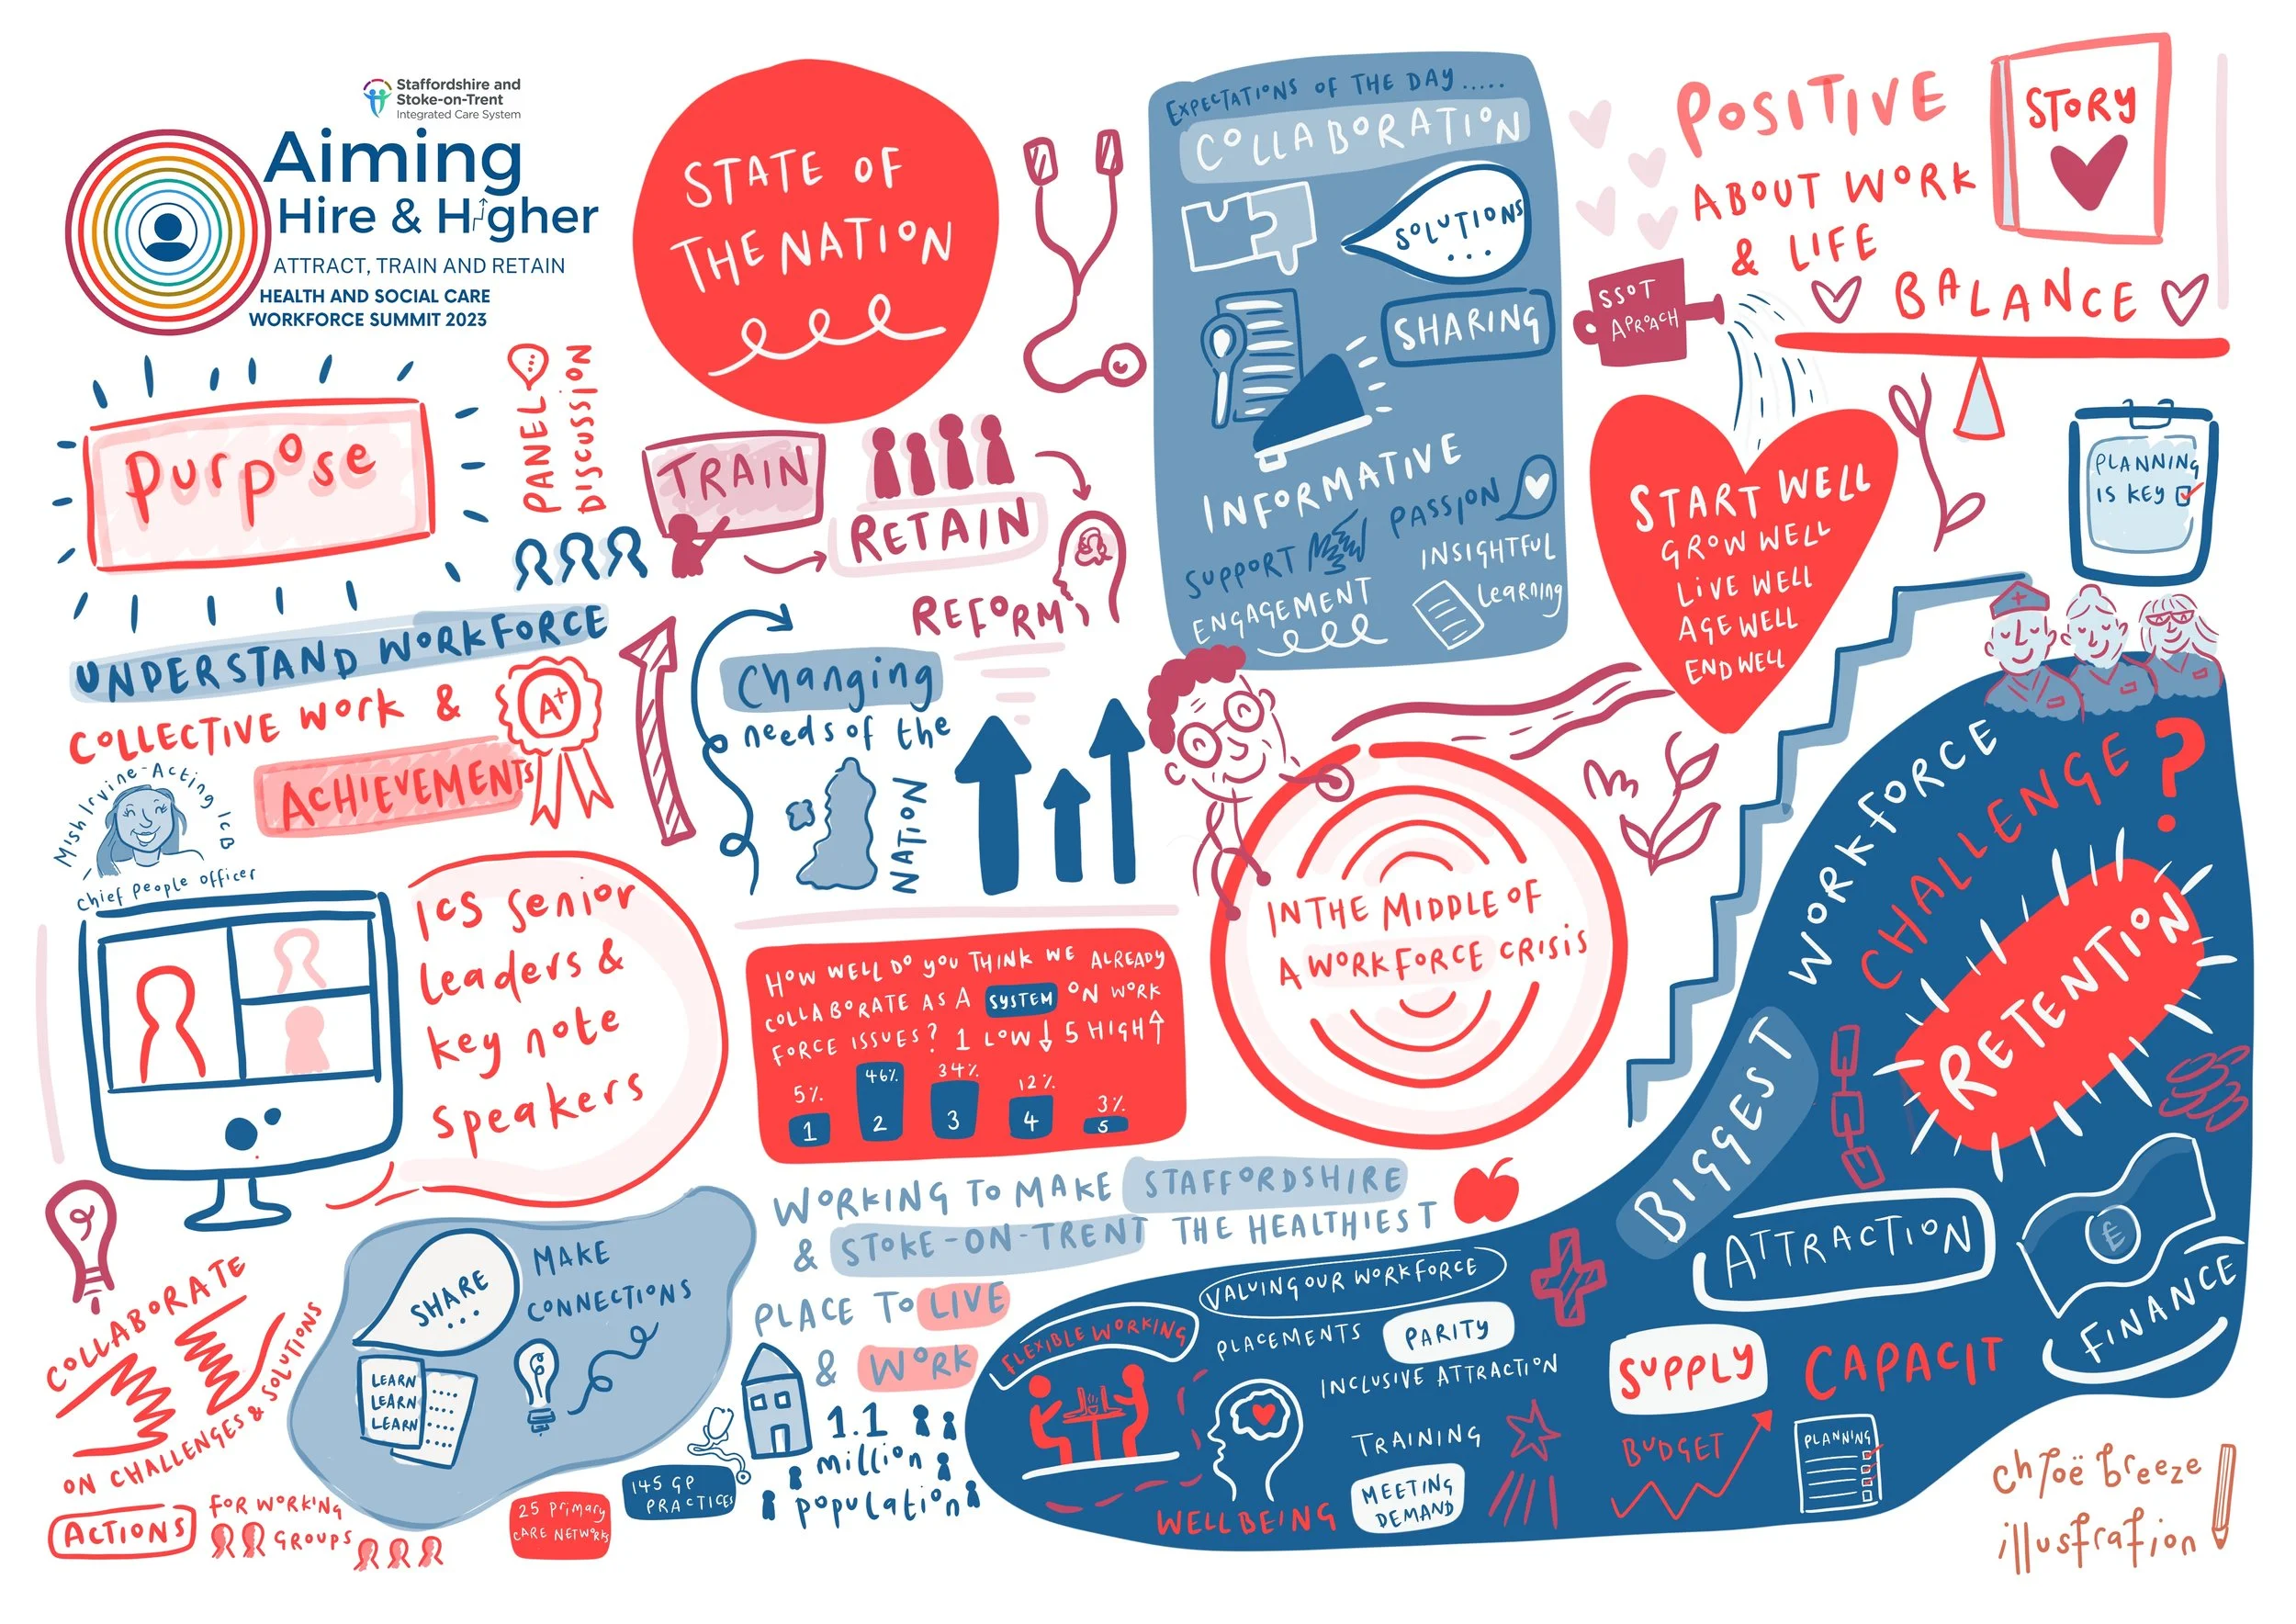 Staffordshire and
Stoke-on-Trent
Integrated Care System
Aiming
Hire & Higher
ATTRACT, TRAIN AND RETAIN
HEALTH AND SOCIAL CARE
WORKFORCE SUMMIT 2023
Purpose
PANEL
DISCUSSION
UNDERSTAND WORKFORCE
COLLECTIVE WORK &
ACHIEVEMENTS
A+
Mish Irvine - Acting ICB
Chief People Officer
ICS Senior
leaders &
key note
speakers
COLLABORATE
ON CHALLENGES & SOLUTIONS
ACTIONS
FOR WORKING
GROUPS
SHARE
...
MAKE
CONNECTIONS
LEARN
LEARN
LEARN
25 Primary
CARE NETWORKS
145 GP
PRACTICES
STATE OF
THE NATION
TRAIN
RETAIN
REFORM
Changing
needs of the
NATION
HOW WELL DO YOU THINK WE ALREADY
COLLABORATE AS A SYSTEM ON WORK
FORCE ISSUES? 1 LOW ↓ 5 HIGH ↑
5% 46% 34% 12% 3%
1 2 3 4 5
WORKING TO MAKE STAFFORDSHIRE
& STOKE-ON-TRENT THE HEALTHIEST
PLACE TO LIVE
& WORK
1.1
million
population
EXPECTATIONS OF THE DAY.....
COLLABORATION
SOLUTIONS
...
SHARING
INFORMATIVE
SUPPORT
PASSION
INSIGHTFUL
ENGAGEMENT
Learning
IN THE MIDDLE OF
A WORKFORCE CRISIS
POSITIVE
ABOUT WORK
& LIFE
BALANCE
STORY
SSOT
APROACH
START WELL
GROW WELL
LIVE WELL
AGE WELL
END WELL
PLANNING
IS KEY
BIGGEST
WORKFORCE
CHALLENGE?
RETENTION
ATTRACTION
£
FINANCE
SUPPLY
CAPACIT
BUDGET
PLANNING
VALUING OUR WORKFORCE
FLEXIBLE WORKING
PLACEMENTS
PARITY
INCLUSIVE ATTRACTION
TRAINING
MEETING
DEMAND
WELLBEING
chloë breeze
illustration